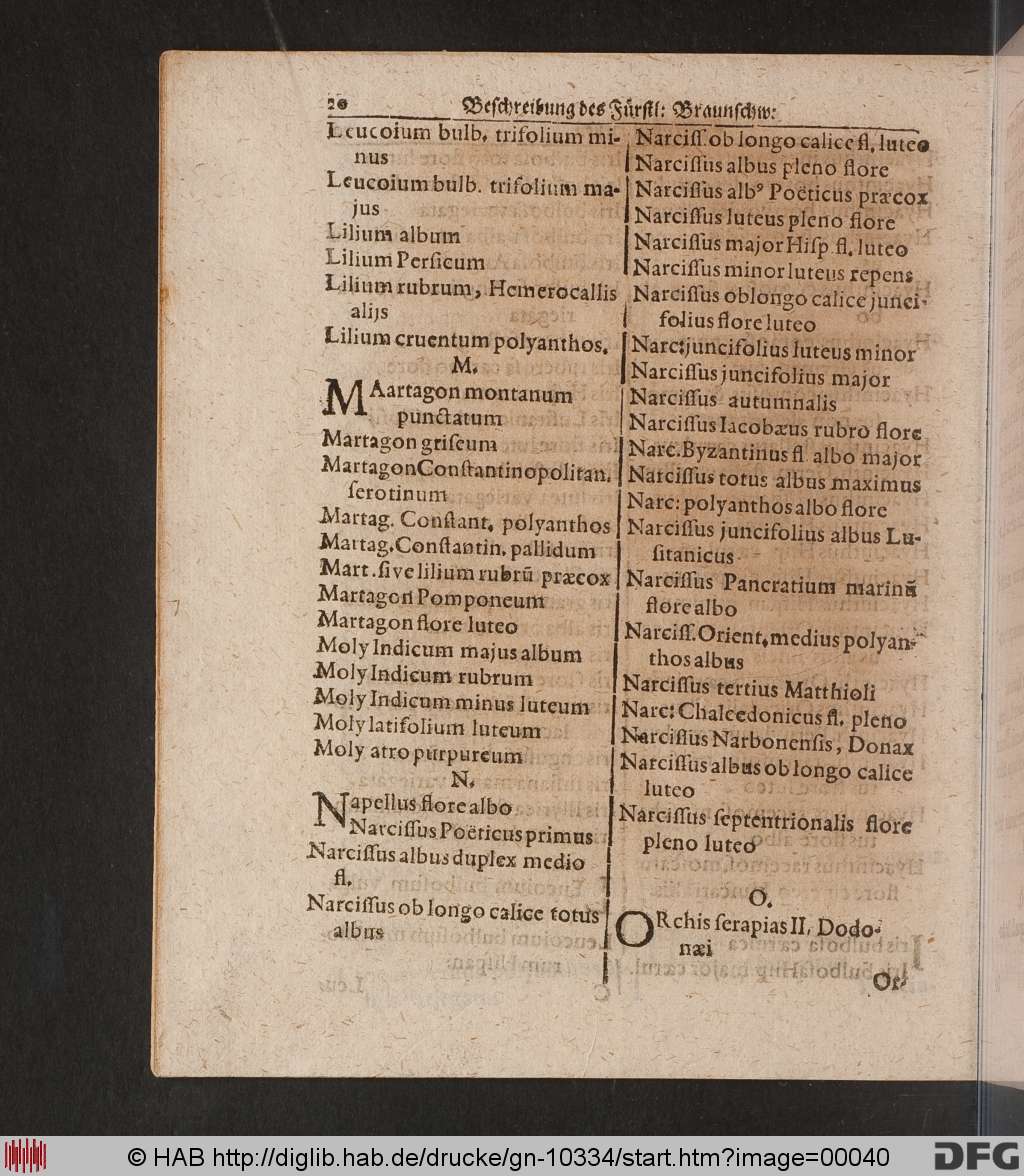 20 Beſchreibung des Fürſtl: Braunſchw:
Leucoium bulb. trifolium mi-
nus
Leucoium bulb. trifolium ma-
jus
Lilium album
Lilium Perſicum
Lilium rubrum, Hemerocallis
alijs
Lilium cruentum polyanthos.
M.
MAartagon montanum
punctatum
Martagon griſeum
Martagon Conſtantinopolitan.
ſerotinum
Martag. Conſtant. polyanthos
Martag. Conſtantin. pallidum
Mart. ſive lilium rubrū præcox
Martagon Pomponeum
Martagon flore luteo
Moly Indicum majus album
Moly Indicum rubrum
Moly Indicum minus luteum
Moly latifolium luteum
Moly atro purpureum
N.
Napellus flore albo
Narciſſus Poëticus primus
Narciſſus albus duplex medio
fl.
Narciſſus ob longo calice totus
albus
Narciſſ. ob longo calice fl. luteo
Narciſſus albus pleno flore
Narciſſus albꝰ Poëticus præcox
Narciſſus luteus pleno flore
Narciſſus major Hiſp. fl. luteo
Narciſſus minor luteus repens
Narciſſus oblongo calice junci-
folius flore luteo
Narc: juncifolius luteus minor
Narciſſus juncifolius major
Narciſſus autumnalis
Narciſſus Iacobæus rubro flore
Narc. Byzantinus fl albo major
Narciſſus totus albus maximus
Narc: polyanthos albo flore
Narciſſus juncifolius albus Lu-
ſitanicus
Narciſſus Pancratium marinū
flore albo
Narciſſ. Orient. medius polyan-
thos albus
Narciſſus tertius Matthioli
Narc: Chalcedonicus fl. pleno
Narciſſus Narbonenſis, Donax
Narciſſus albus ob longo calice
luteo
Narciſſus ſeptentrionalis flore
pleno luteo
O.
ORchis ſerapias II. Dodo-
næi
Or-
© HAB http://diglib.hab.de/drucke/gn-10334/start.htm?image=00040
DFG